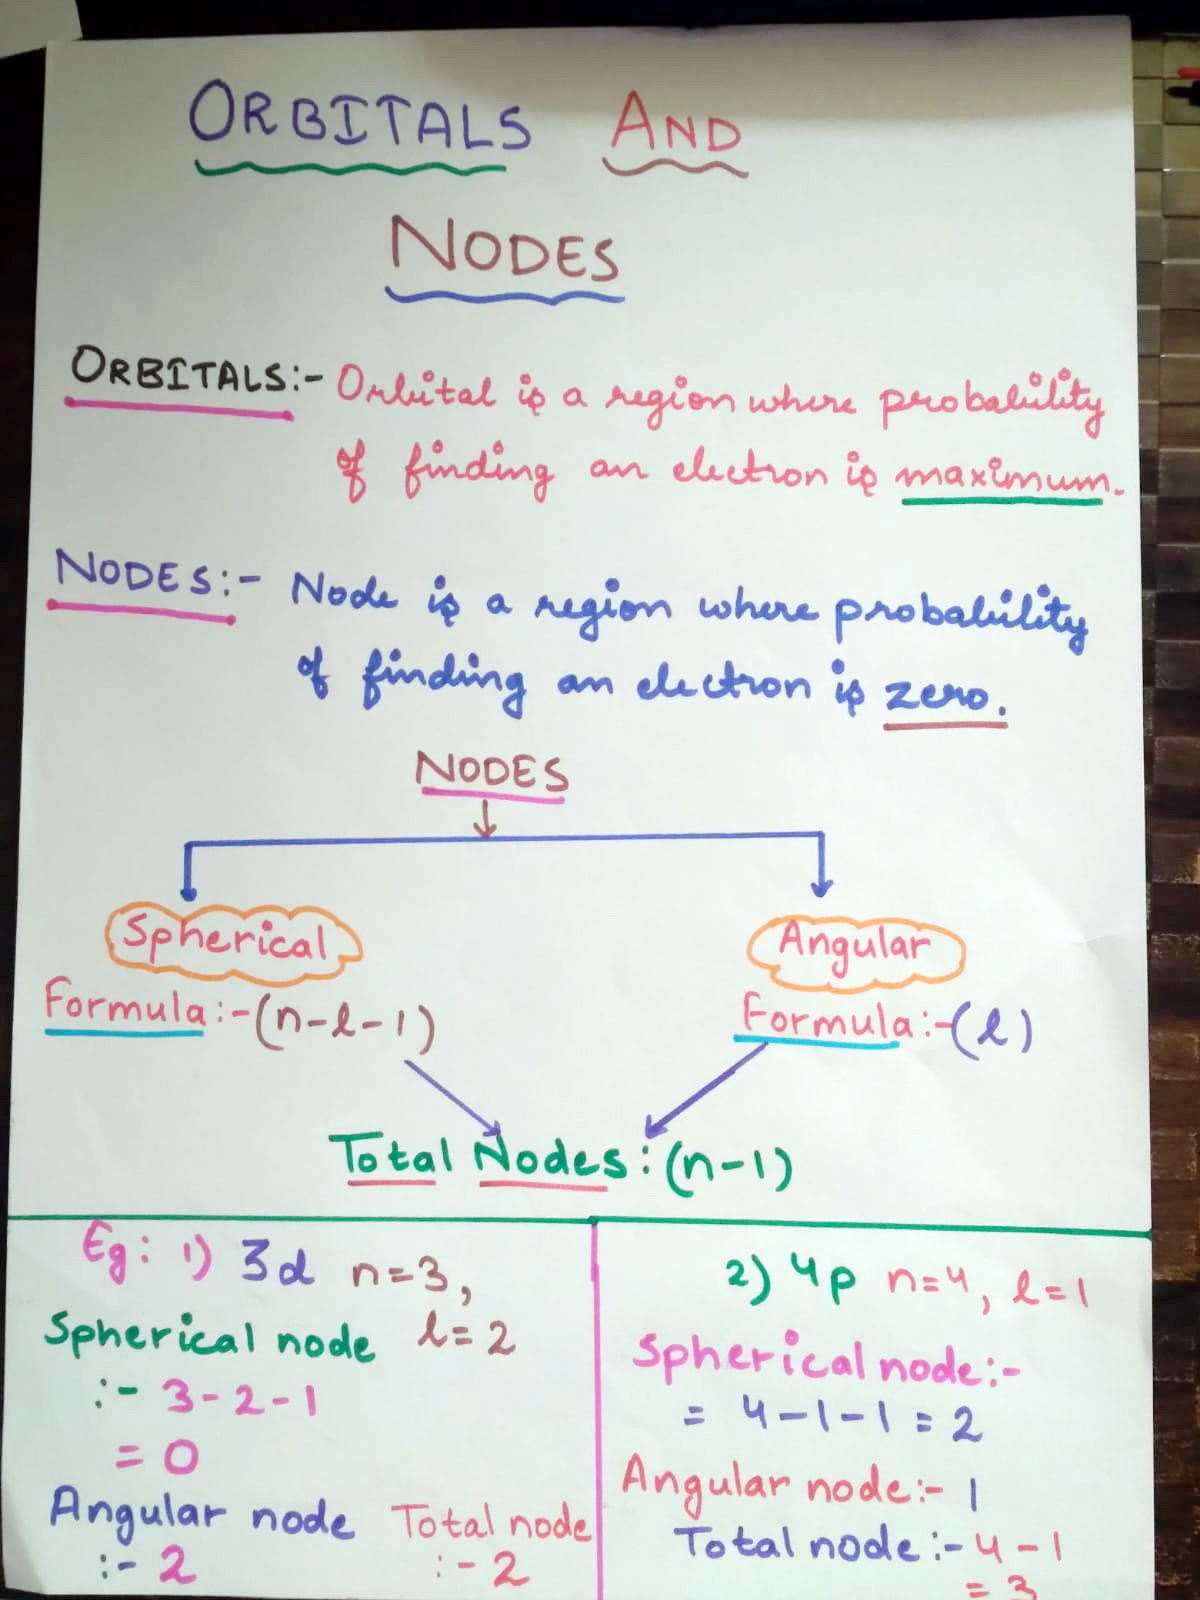 ORBITALS AND
NODES
ORBITALS:- Orbital is a region where probability
of finding an electron is maximum.
NODES:- Node is a region where probability
of finding an electron is zero.
NODES
Spherical
Formula:-(n-l-1)
Angular
Formula:-(l)
Total Nodes:(n-1)
Eg: 1) 3d n=3,
Spherical node l=2
:- 3-2-1
= 0
Angular node
:- 2
Total node
:- 2
2) 4p n=4, l=1
Spherical node:-
= 4-1-1 = 2
Angular node:- 1
Total node:- 4-1
= 3